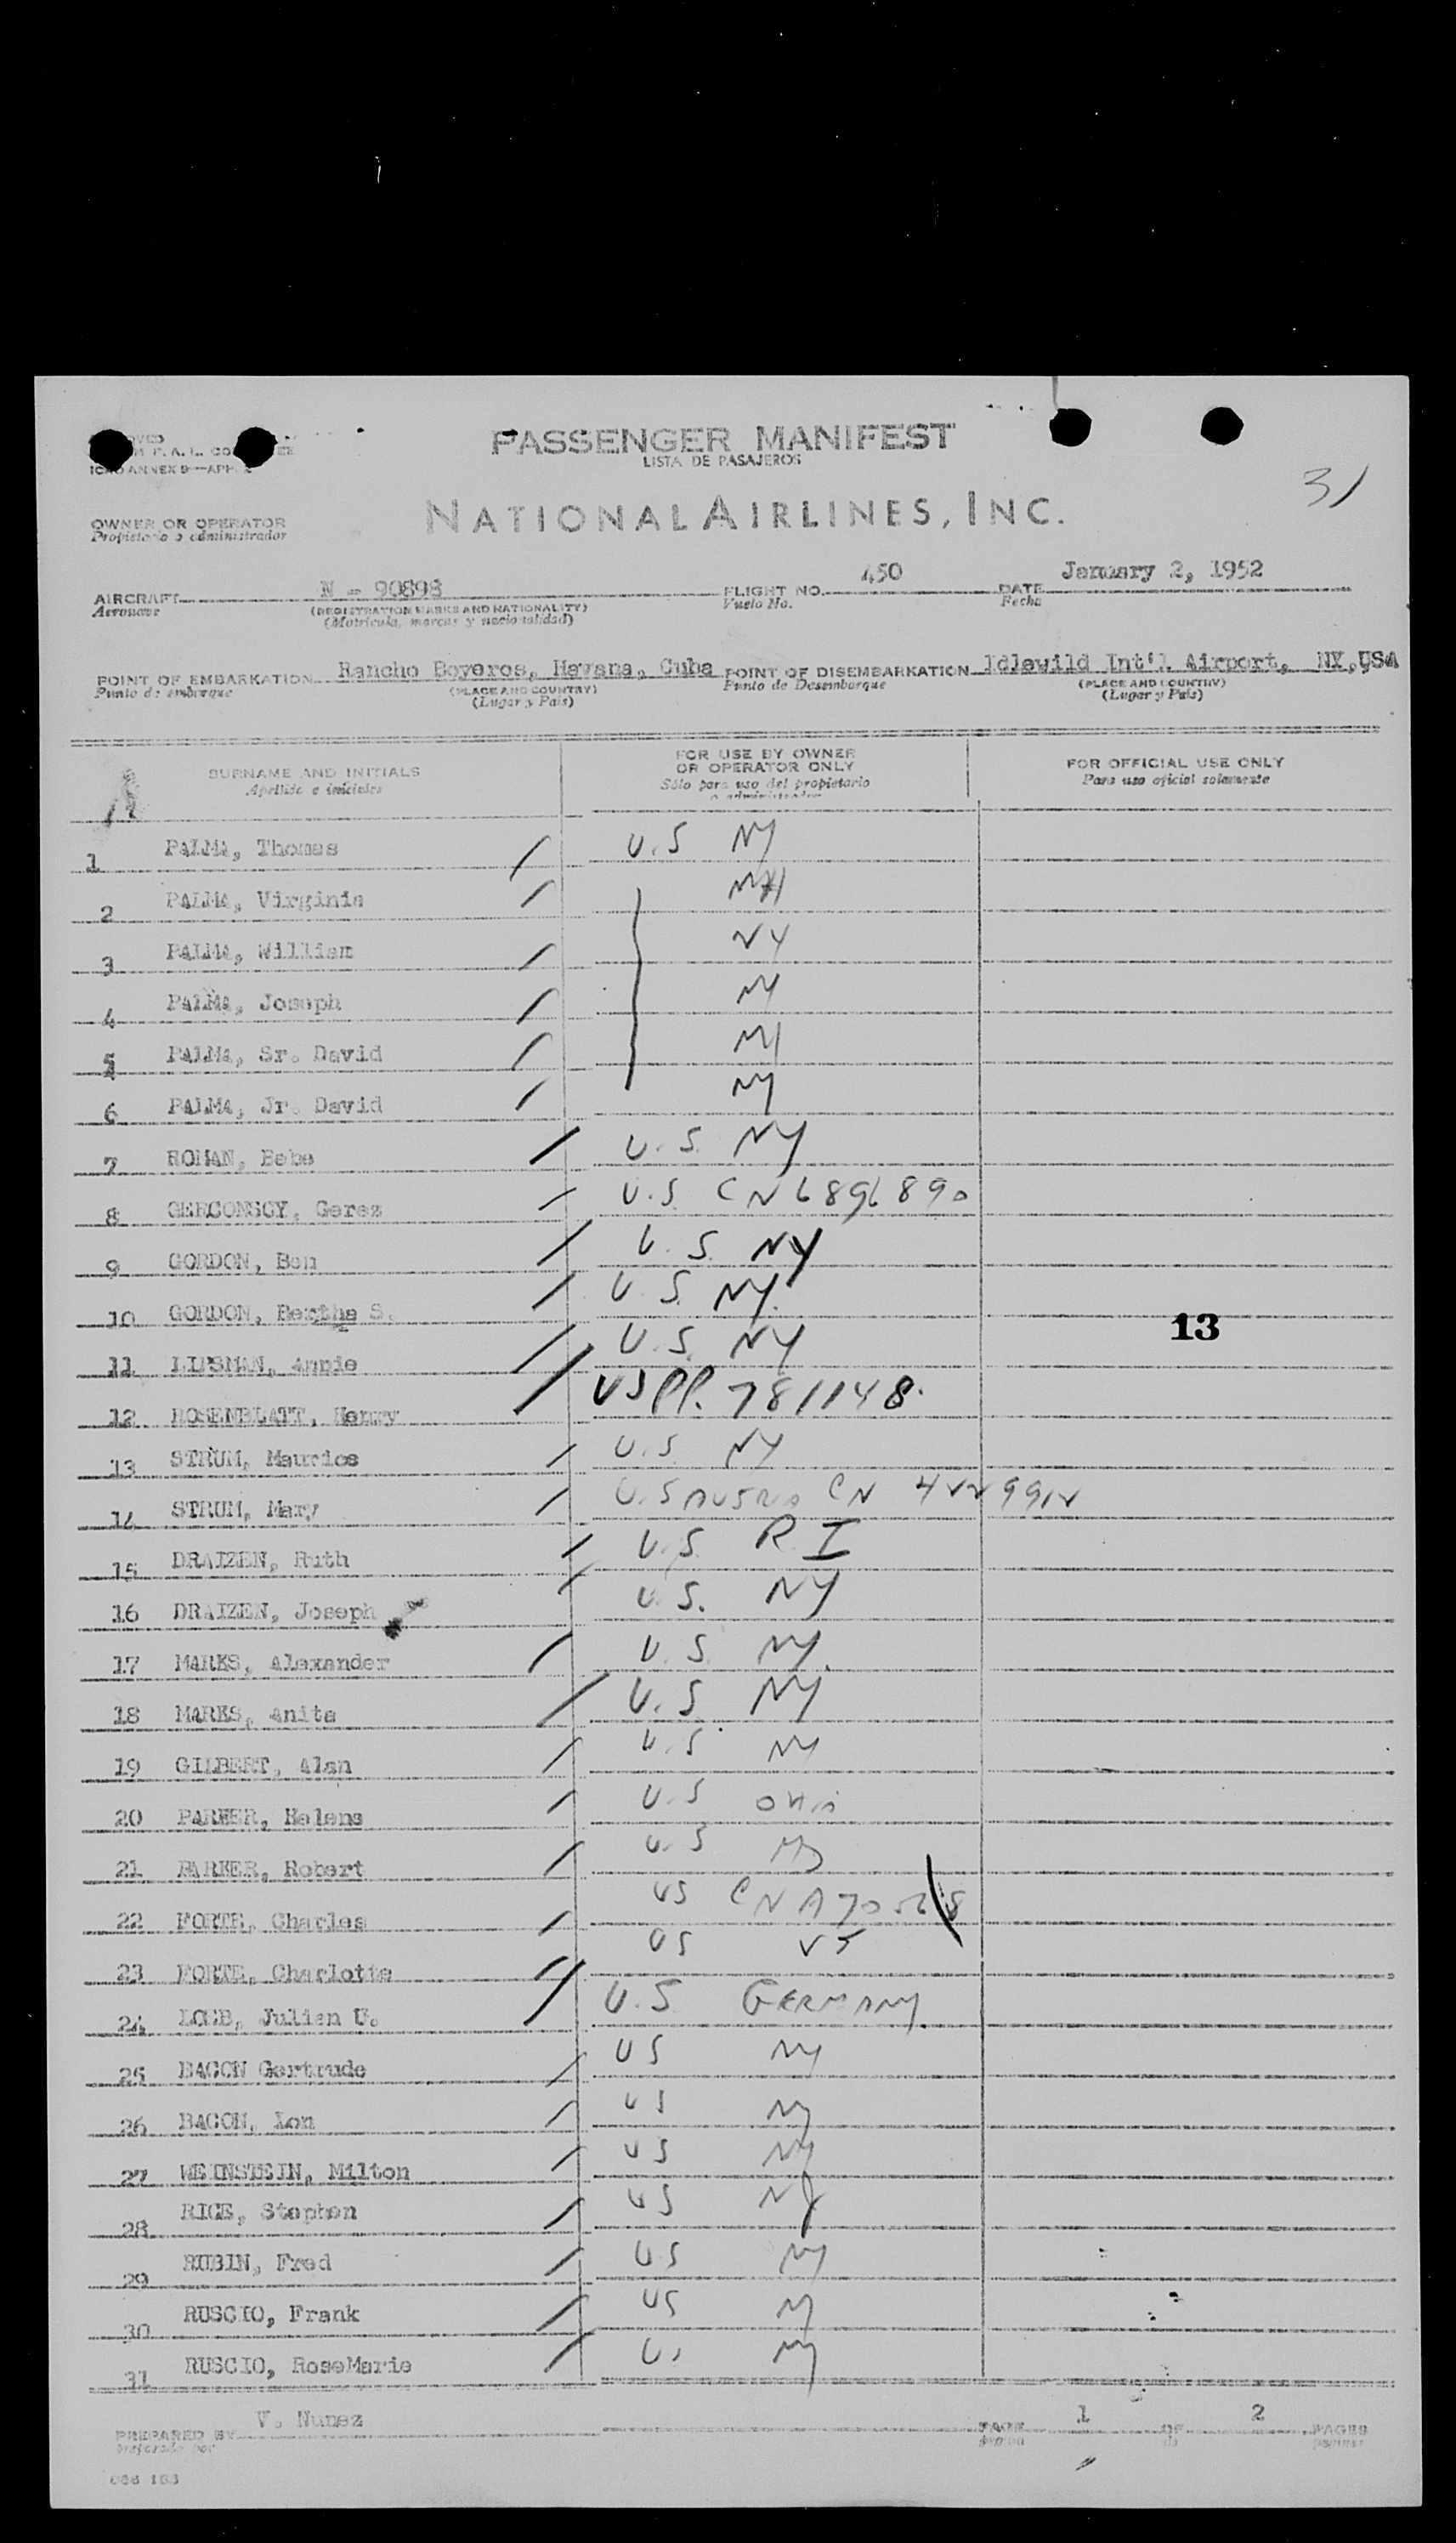 PASSENGER MANIFEST
LISTA DE PASAJEROS
31
NATIONAL AIRLINES, INC.
ICAO ANNEX 9—APP. 2
OWNER OR OPERATOR
Propietario o administrador
AIRCRAFT N - 90898 FLIGHT NO. 450 DATE January 2, 1952
Aeronave (REGISTRATION MARKS AND NATIONALITY) Vuelo No. Fecha
(Matricula, marcas y nacionalidad)
POINT OF EMBARKATION Rancho Boyeros, Havana, Cuba POINT OF DISEMBARKATION Idlewild Int'l Airport, NY,USA
Punto de embarque (PLACE AND COUNTRY) Punto de Desembarque (PLACE AND COUNTRY)
(Lugar y Pais) (Lugar y Pais)
SURNAME AND INITIALS FOR USE BY OWNER OR OPERATOR ONLY FOR OFFICIAL USE ONLY
Apellido e iniciales Sólo para uso del propietario o administrador Para uso oficial solamente
1 PALMA, Thomas / U.S NY
2 PALMA, Virginia / NY
3 PALMA, William / NY
4 PALMA, Joseph / NY
5 PALMA, Sr. David / NY
6 PALMA, Jr. David / NY
7 ROMAN, Bebe / U.S. NY
8 GERCONSGY, Gerez / U.S. CN 6896890
9 GORDON, Ben / U.S. NY
10 GORDON, Bertha S. / U.S. NY.
13
11 LIPSMAN, Annie / U.S. NY
12 ROSENBLATT, Henry / US PP. 781148.
13 STRUM, Maurice / U.S. NY
14 STRUM, Mary / U.S CN
15 DRAIZEN, Ruth / U.S. R.I
16 DRAIZEN, Joseph / U.S. NY
17 MARKS, Alexander / U.S. NY.
18 MARKS, Anita / U.S NY
19 GILBERT, Alan / U.S. NY
20 PARKER, Helene / U.S OHIO
21 PARKER, Robert / U.S
22 FORTE, Charles / US CN
23 FORTE, Charlotte / US VT
24 LOEB, Julien U. / U.S. GERMANY
25 BACON Gertrude / US NY
26 BACON, Lon / US NY
27 WEINSTEIN, Milton / US NY
28 RICE, Stephen / US NY
29 RUBIN, Fred / US NY
30 RUSCIO, Frank / US NY
31 RUSCIO, RoseMarie / US NY
PREPARED BY V. Nunez PAGE 1 OF 2 PAGES
preparado por